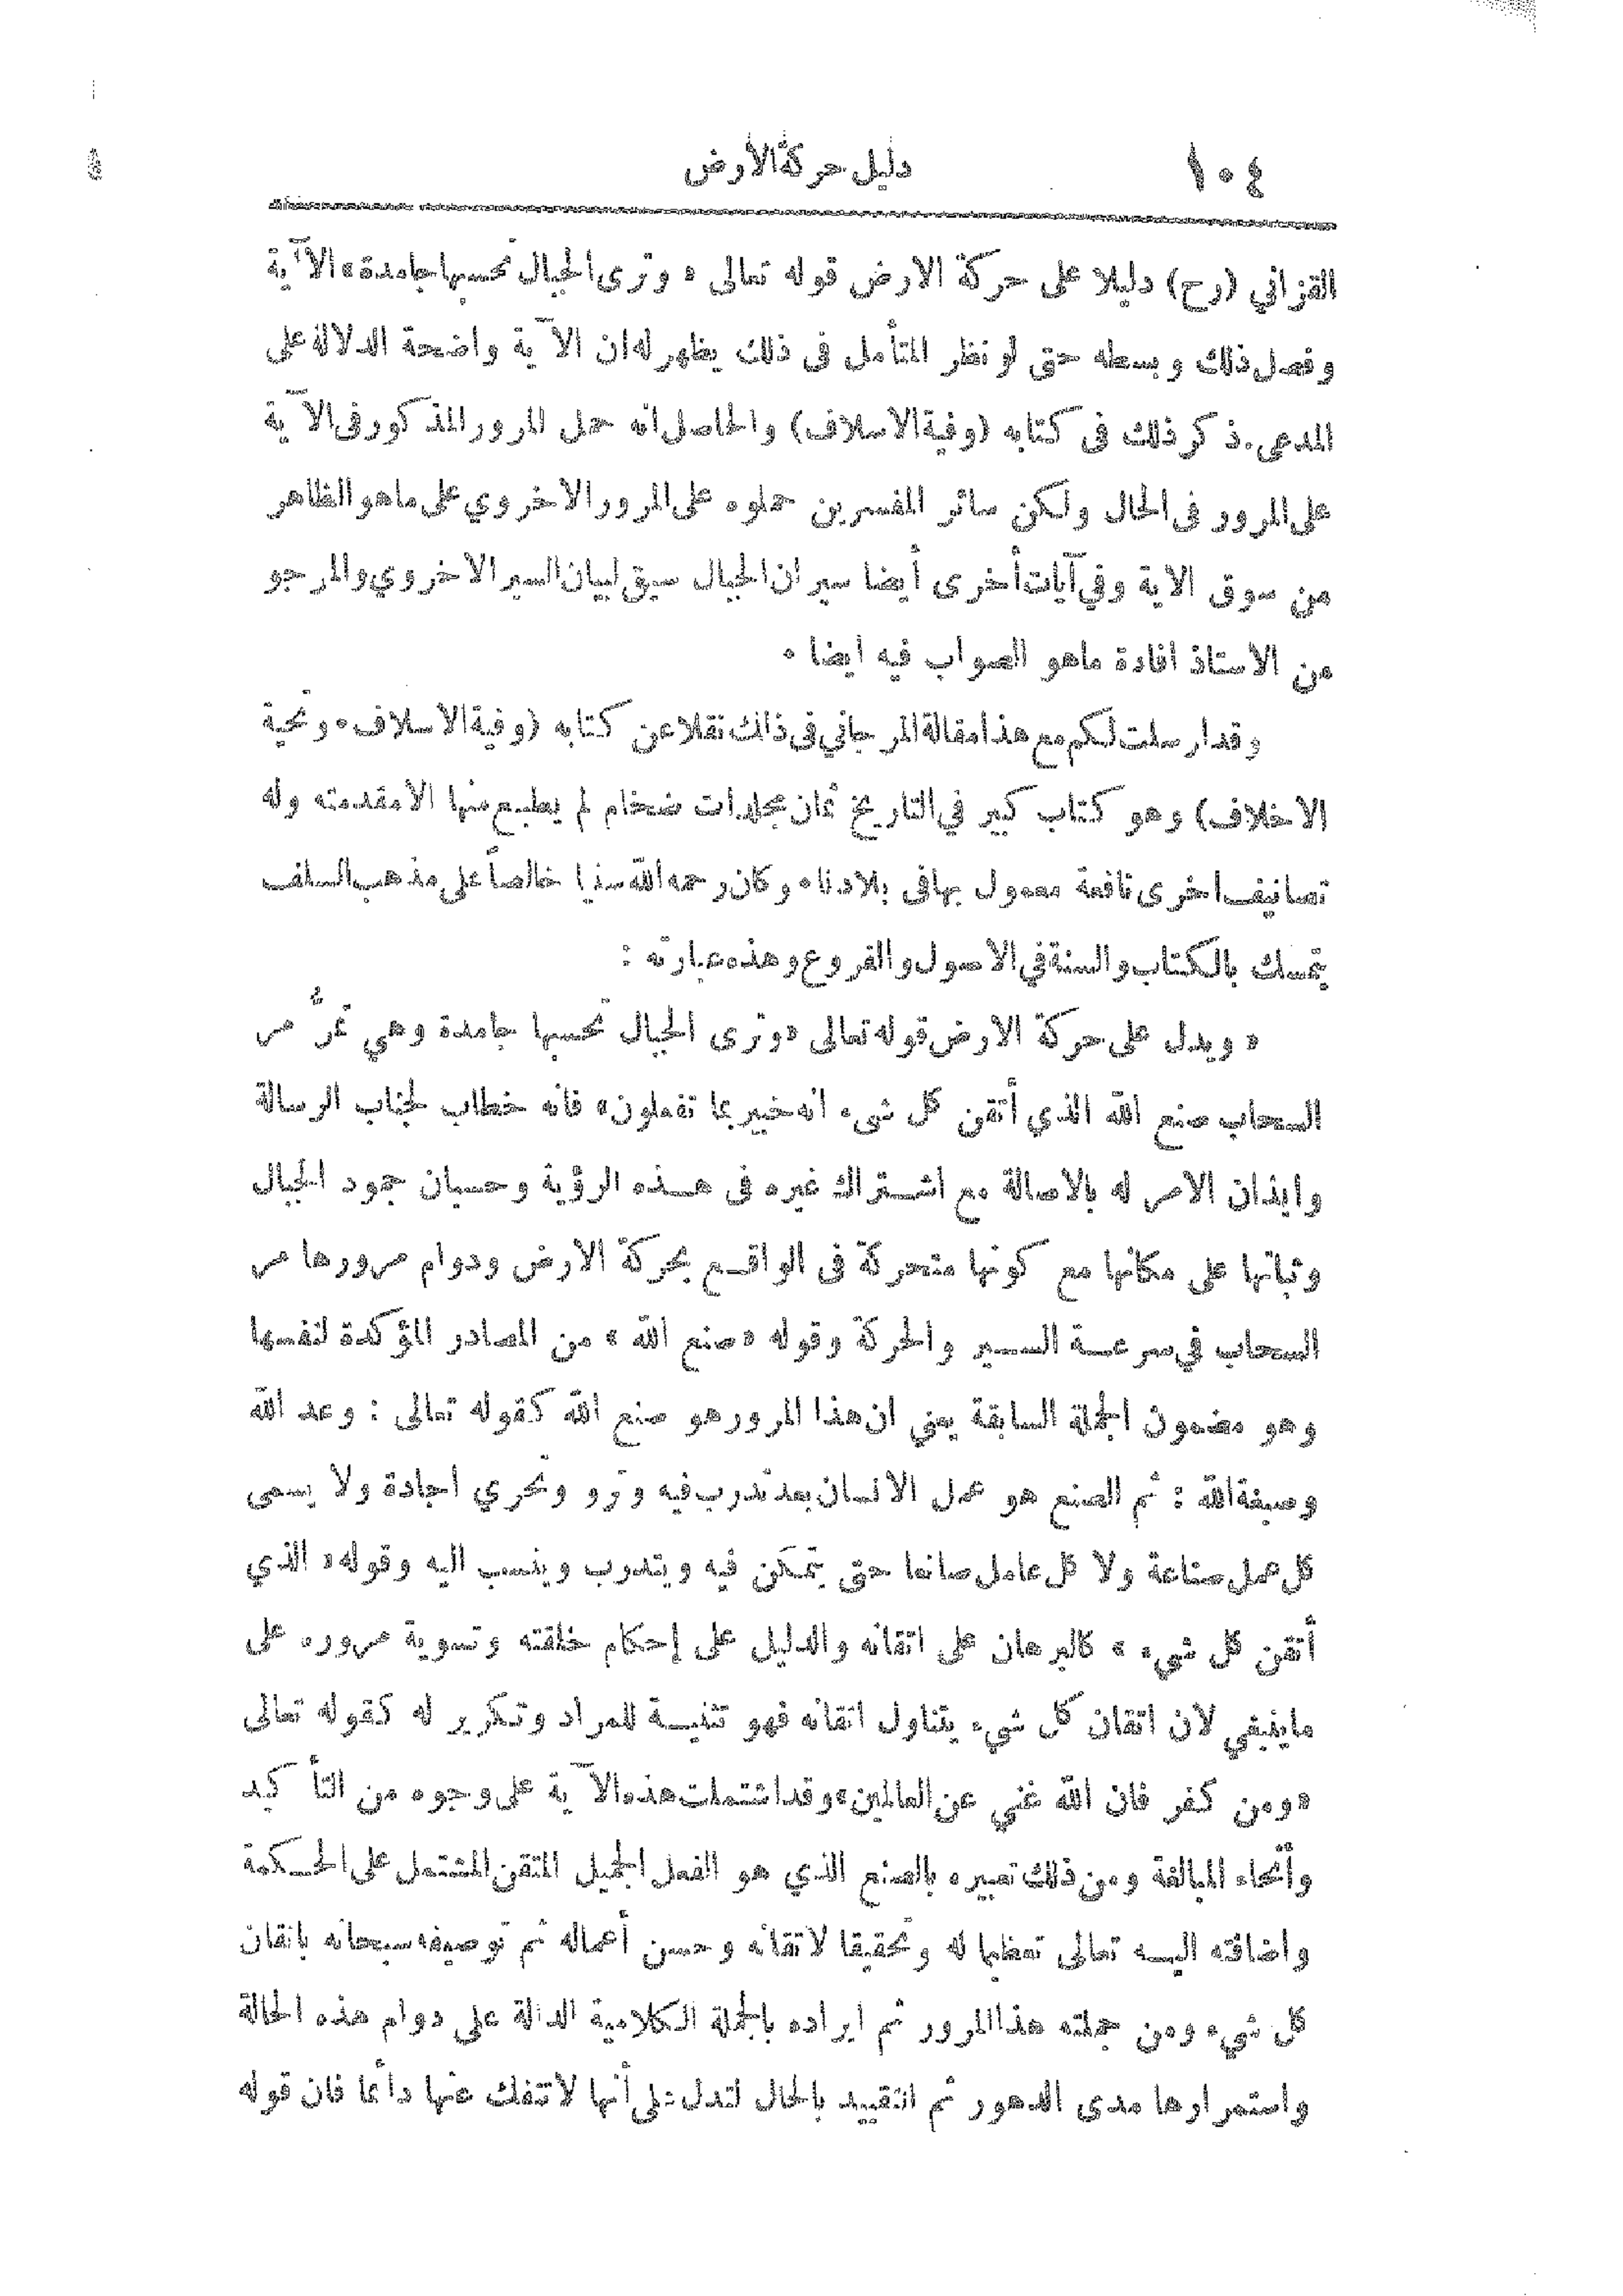 ١٠٤ دليل حركة الأرض
القزاني (رح) دليلا على حركة الارض قوله تعالى « وترى الجبال تحسبها جامدة » الآية
وفصل ذلك وبسطه حتى لو نظر المتأمل في ذلك يظهر له ان الآية واضحة الدلالة على
المدعى . ذكر ذلك في كتابه (وفية الاسلاف) والحاصل انه حمل المرور المذكور في الآية
على المرور في الحال ولكن سائر المفسرين حملوه على المرور الاخروي على ما هو الظاهر
من سوق الاية وفي آيات أخرى أيضا سيران الجبال سيق لبيان السير الاخروي والمرجو
من الاستاذ افادة ماهو الصواب فيه ايضا .
وقد ارسلت لكم مع هذا مقالة المرجاني في ذلك نقلا عن كتابه (وفية الاسلاف . وتحية
الاخلاف) وهو كتاب كبير في التاريخ ثمان مجلدات ضخام لم يطبع منها الا مقدمته وله
تصانيف اخرى نافعة معمول بها في بلادنا . وكان رحمه الله سنيا خالصاً على مذهب السلف
يتمسك بالكتاب والسنة في الاصول والفروع وهذه عبارته :
« ويدل على حركة الارض قوله تعالى « وترى الجبال تحسبها جامدة وهي تمرُّ مر
السحاب صنع الله الذي أتقن كل شيء انه خبير بما تفعلون » فانه خطاب لجناب الرسالة
وايذان الامر له بالاصالة مع اشتراك غيره في هذه الرؤية وحسبان جمود الجبال
وثباتها على مكانها مع كونها متحركة في الواقع بحركة الارض ودوام مرورها مر
السحاب في سرعة السير والحركة وقوله « صنع الله » من المصادر المؤكدة لنفسها
وهو مضمون الجملة السابقة يعني ان هذا المرور هو صنع الله كقوله تعالى : وعد الله
وصبغة الله : ثم الصنع هو عمل الانسان بعد تدرب فيه وترو وتحري اجادة ولا يسمى
كل عمل صناعة ولا كل عامل صانعا حتى يتمكن فيه ويتدرب وينسب اليه وقوله « الذي
أتقن كل شيء » كالبرهان على اتقانه والدليل على إحكام خلقته وتسوية مروره على
ما ينبغي لان اتقان كل شيء يتناول اتقانه فهو تثنية للمراد وتكرير له كقوله تعالى
« ومن كفر فان الله غني عن العالمين » وقد اشتملت هذه الآية على وجوه من التأكيد
وأنحاء المبالغة ومن ذلك تعبيره بالصنع الذي هو الفعل الجميل المتقن المشتمل على الحكمة
واضافته اليه تعالى تعظيما له وتحقيقا لاتقانه وحسن أعماله ثم توصيفه سبحانه باتقان
كل شيء ومن جملته هذا المرور ثم ايراده بالجملة الكلامية الدالة على دوام هذه الحالة
واستمرارها مدى الدهور ثم التقييد بالحال لتدل على أنها لا تنفك عنها دأئما فان قوله